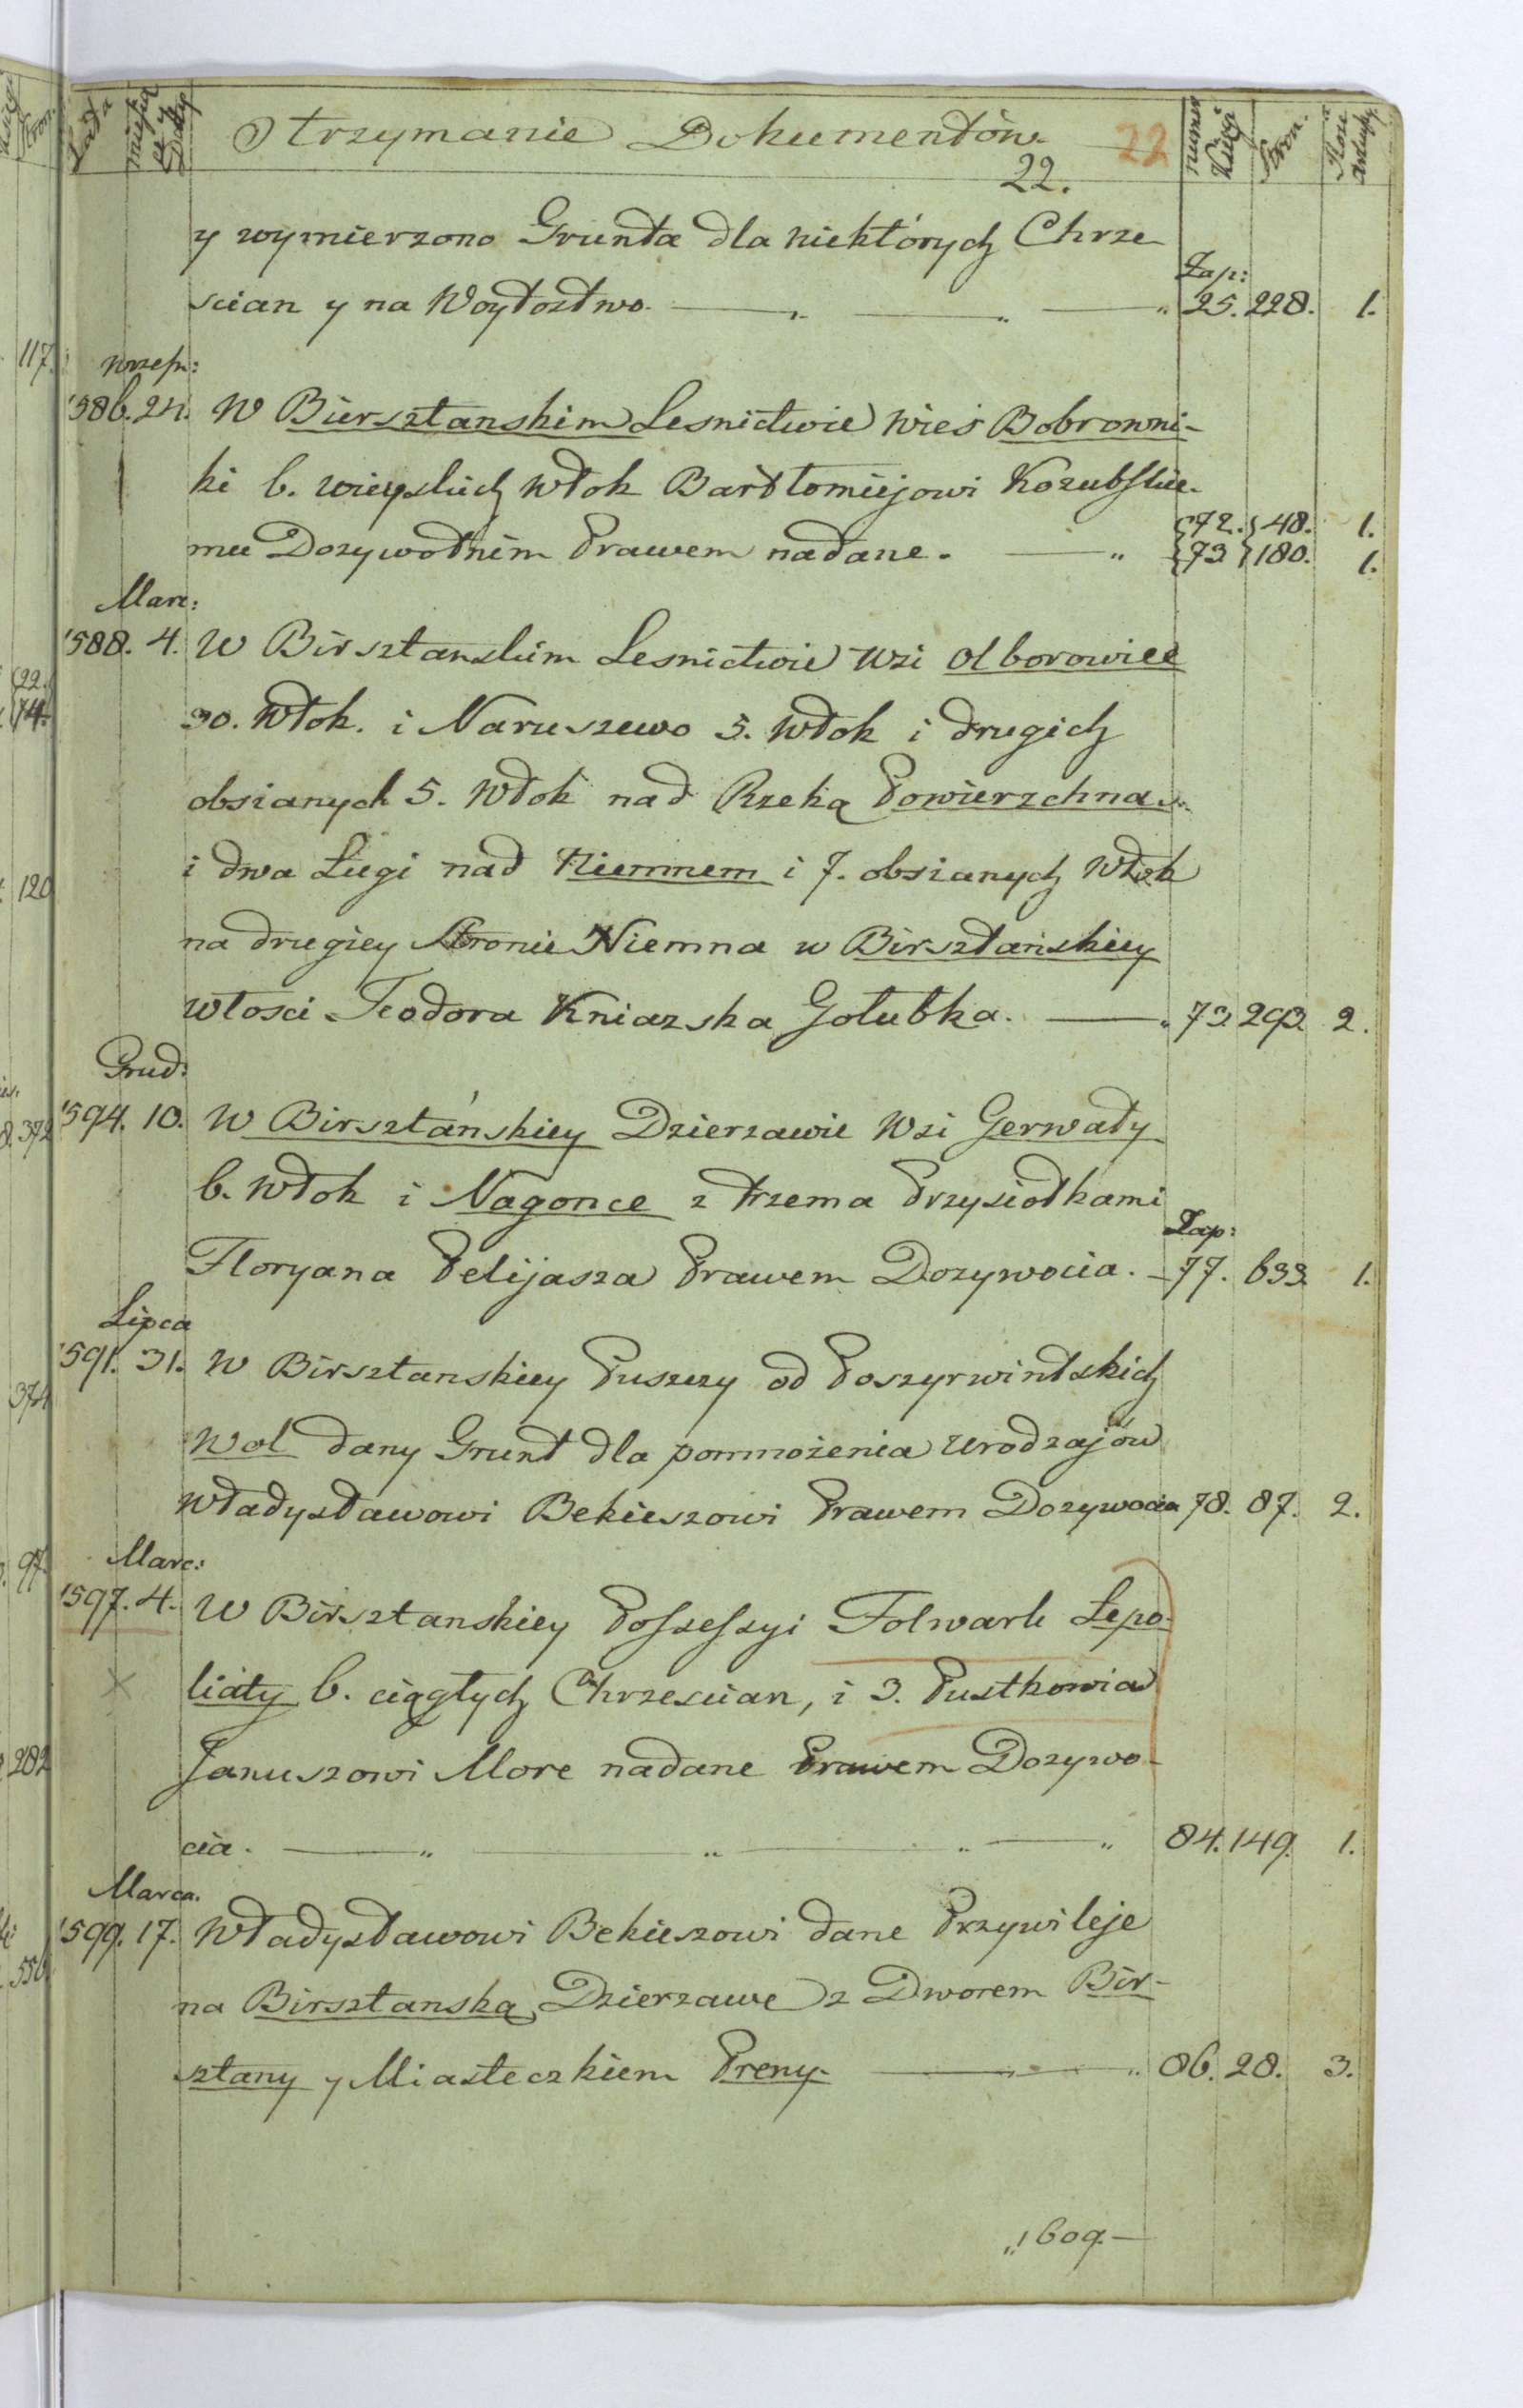 Lata
miesiąc y Daty
Otrzymanie Dokumentów.
22
22.
numer Księgi
Stron.
y wymierzono Grunta dla niektórych Chrze-
Zap:
scian y na Woytostwo. 25. 228. 1.
wrzesn:
1586. 24. W Biersztanskim Lesnictwie wieś Bobrowni-
ki 6. wieyskich włok Bartłomiejowi Kozubskie-
mu Dozywotnim Prawem nadane. {72.} 48. 1.
{73} 180. 1.
Marc:
1588. 4. W Birsztanskim Lesnictwie wsi Olborowice
30. Włok. i Naruszewo 5. Włok i drugich
obsianych 5. Włok nad Rzeką Powierzchna
i dwa Ługi nad Niemnem i 7. obsianych Włok
na drugiey stronie Niemna w Birsztańskiey
włosci Teodora Kniazska Gołubka. 73 293 2.
Grud:
1594. 10. W Birsztańskiey Dzierzawie Wsi Gerwaty
6. Włok i Nagonce z trzema Przysiołkami
Zap:
Floryana Pelijasza Prawem Dozywocia. 77. 633 1.
Lipca
1591. 31. W Birsztanskiey Puszczy od Poszyrwintskich
Wol dany Grunt dla pomnożenia urodzajów
Władysławowi Bekieszowi Prawem Dozywocia 78. 87. 2.
Marc:
1597. 4. W Birsztanskiey Possessyi Folwark Łepo-
liaty 6. ciągłych Chrzescian, i 3. Pustkowia
Januszowi More nadane Prawem Dozywo-
cia. 84. 149. 1.
Marca.
1599. 17. Władysławowi Bekieszowi dane Przywileje
na Birsztanską Dzierzawę z Dworem Bir-
sztany y Miasteczkiem Preny. 86. 28. 3.
1609.